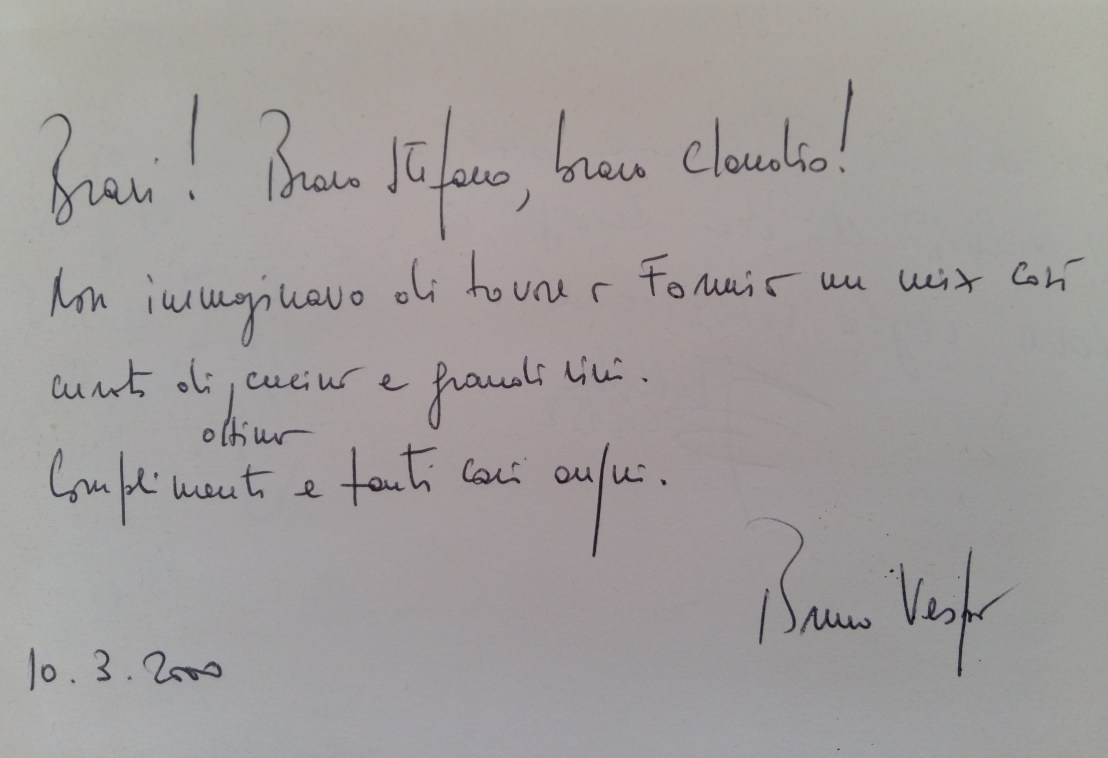 Bravi! Bravo Stefano, bravo Claudio!
Non immaginavo di trovare a Formia un mix così
curato di cucina e grandi vini.
ottima
Complimenti e tanti cari auguri.
Bruno Vespa
10.3.2000